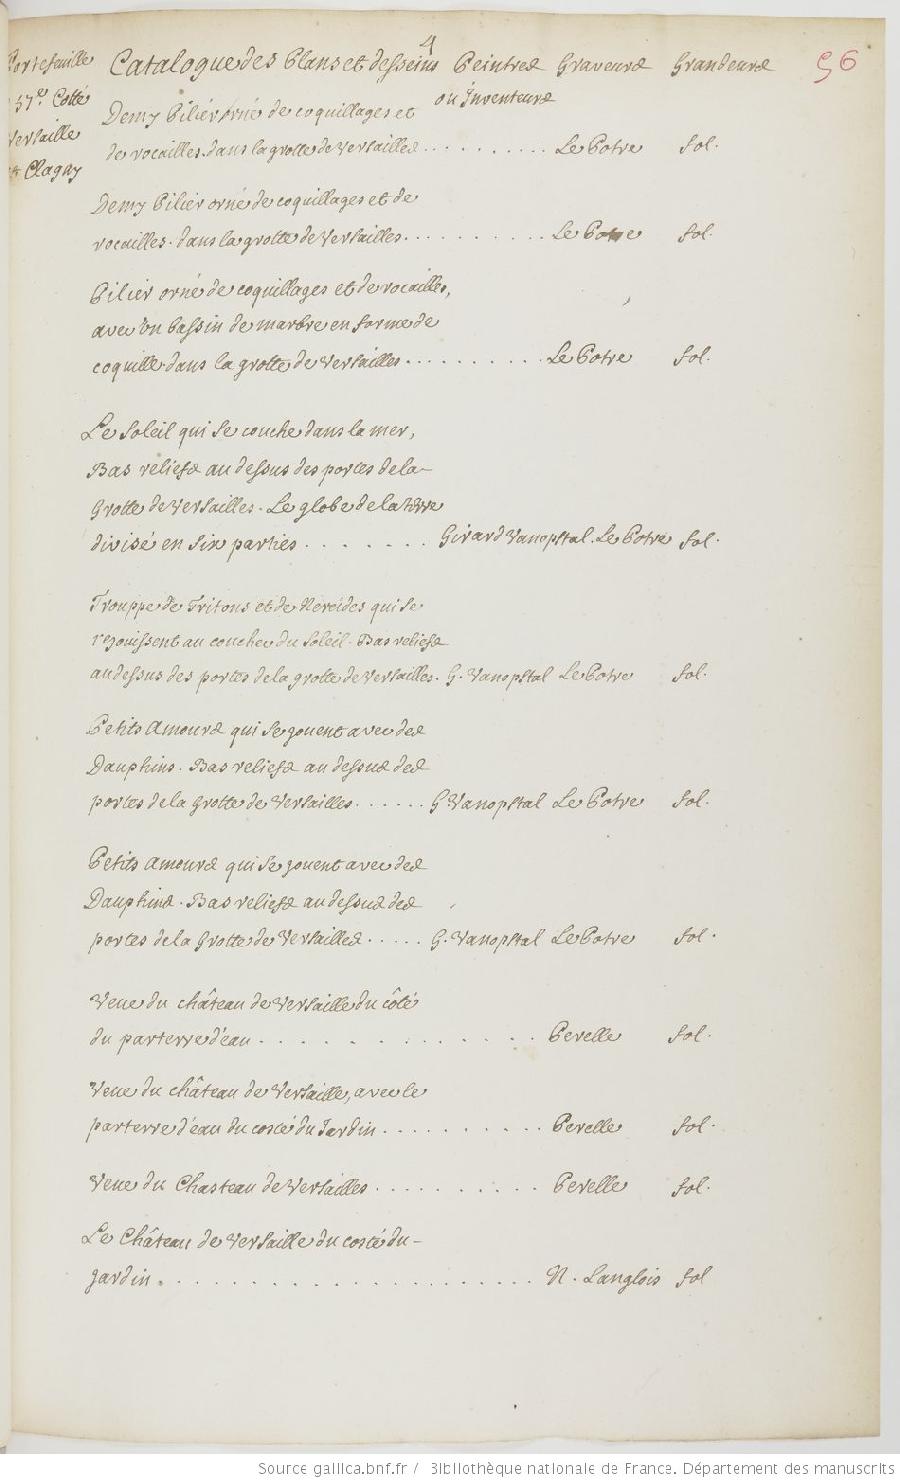 4
56
Portefeuille
57e. Cotté
Versaille
et Clagny
Catalogue des Plans et desseins Peintres Graveurs Grandeurs
ou Inventeurs
Demy Pilier orné de coquillages et
de rocailles. dans la grotte de Versailles .......... Le Potre fol.
Demy Pilier orné de coquillages et de
rocailles. dans la grotte de Versailles ........... Le Potre fol.
Pilier orné de coquillages et de rocailles,
avec un bassin de marbre en forme de
coquille dans la grotte de Versailles .......... Le Potre fol.
Le Soleil qui se couche dans la mer,
Bas reliefs au dessus des portes de la
Grotte de Versailles. Le globe de la terre
divisé en six parties ....... Girard Vanopstal. Le Potre fol.
Trouppe de Tritons et de Nereides qui se
rejouissent au coucher du Soleil. Bas reliefs
au dessus des portes de la grotte de Versailles. G. Vanopstal Le Potre fol.
Petits Amours qui se jouent avec des
Dauphins. Bas reliefs au dessus des
portes de la Grotte de Versailles ...... G Vanopstal Le Potre fol.
Petits Amours qui se jouent avec des
Dauphins. Bas reliefs au dessus des
portes de la Grotte de Versailles ..... G. Vanopstal Le Potre fol.
Veue du château de Versaille du côté
du parterre d'eau .............. Perelle fol.
Veue du château de Versaille, avec le
parterre d'eau du costé du Jardin .......... Perelle fol.
Veue du Chasteau de Versailles .......... Perelle fol.
Le Château de Versaille du costé du
jardin ..................... N. Langlois fol
Source gallica.bnf.fr / Bibliothèque nationale de France. Département des manuscrits